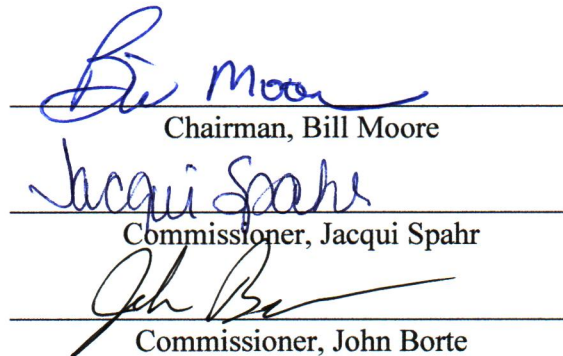 Bill Moore
Chairman, Bill Moore
Jacqui Spahr
Commissioner, Jacqui Spahr
John B
Commissioner, John Borte